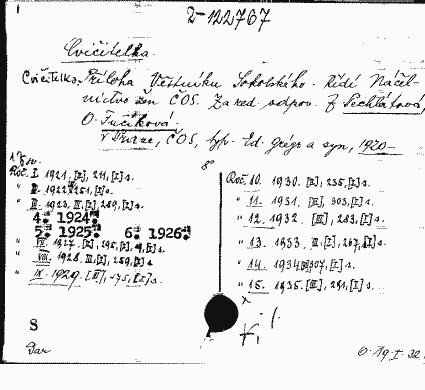 2-122767
Cvičitelka.
Cvičitelka. Příloha Věstníku Sokolského. Řídí Náčel-
nictvo žen ČOS. Za red. odpov. F. Pechlátová,
O. Fučíková.
V Praze, ČOS, typ. Ed. Grégr a syn, 1920-
8°
Roč. I. 1921. [I], 211, [I] s.
" II. 1922. 251, [I] s.
" III. 1923. II, [I], 269, [I] s.
4. 1924.
5. 1925. 6. 1926.
" VII. 1927. [I], 295, [I] s.
" VIII. 1928. II, [I], 259, [I] s.
" IX. 1929. [III], 275, [I] s.
Roč. 10. 1930. [I], 235, [I] s.
" 11. 1931. [II], 303, [I] s.
" 12. 1932. [III], 283, [I] s.
" 13. 1933. II, [I], 267, [I] s.
" 14. 1934. 307, [I] s.
" 15. 1935. [III], 291, [I] s.
S
Dar
O-19-I-32